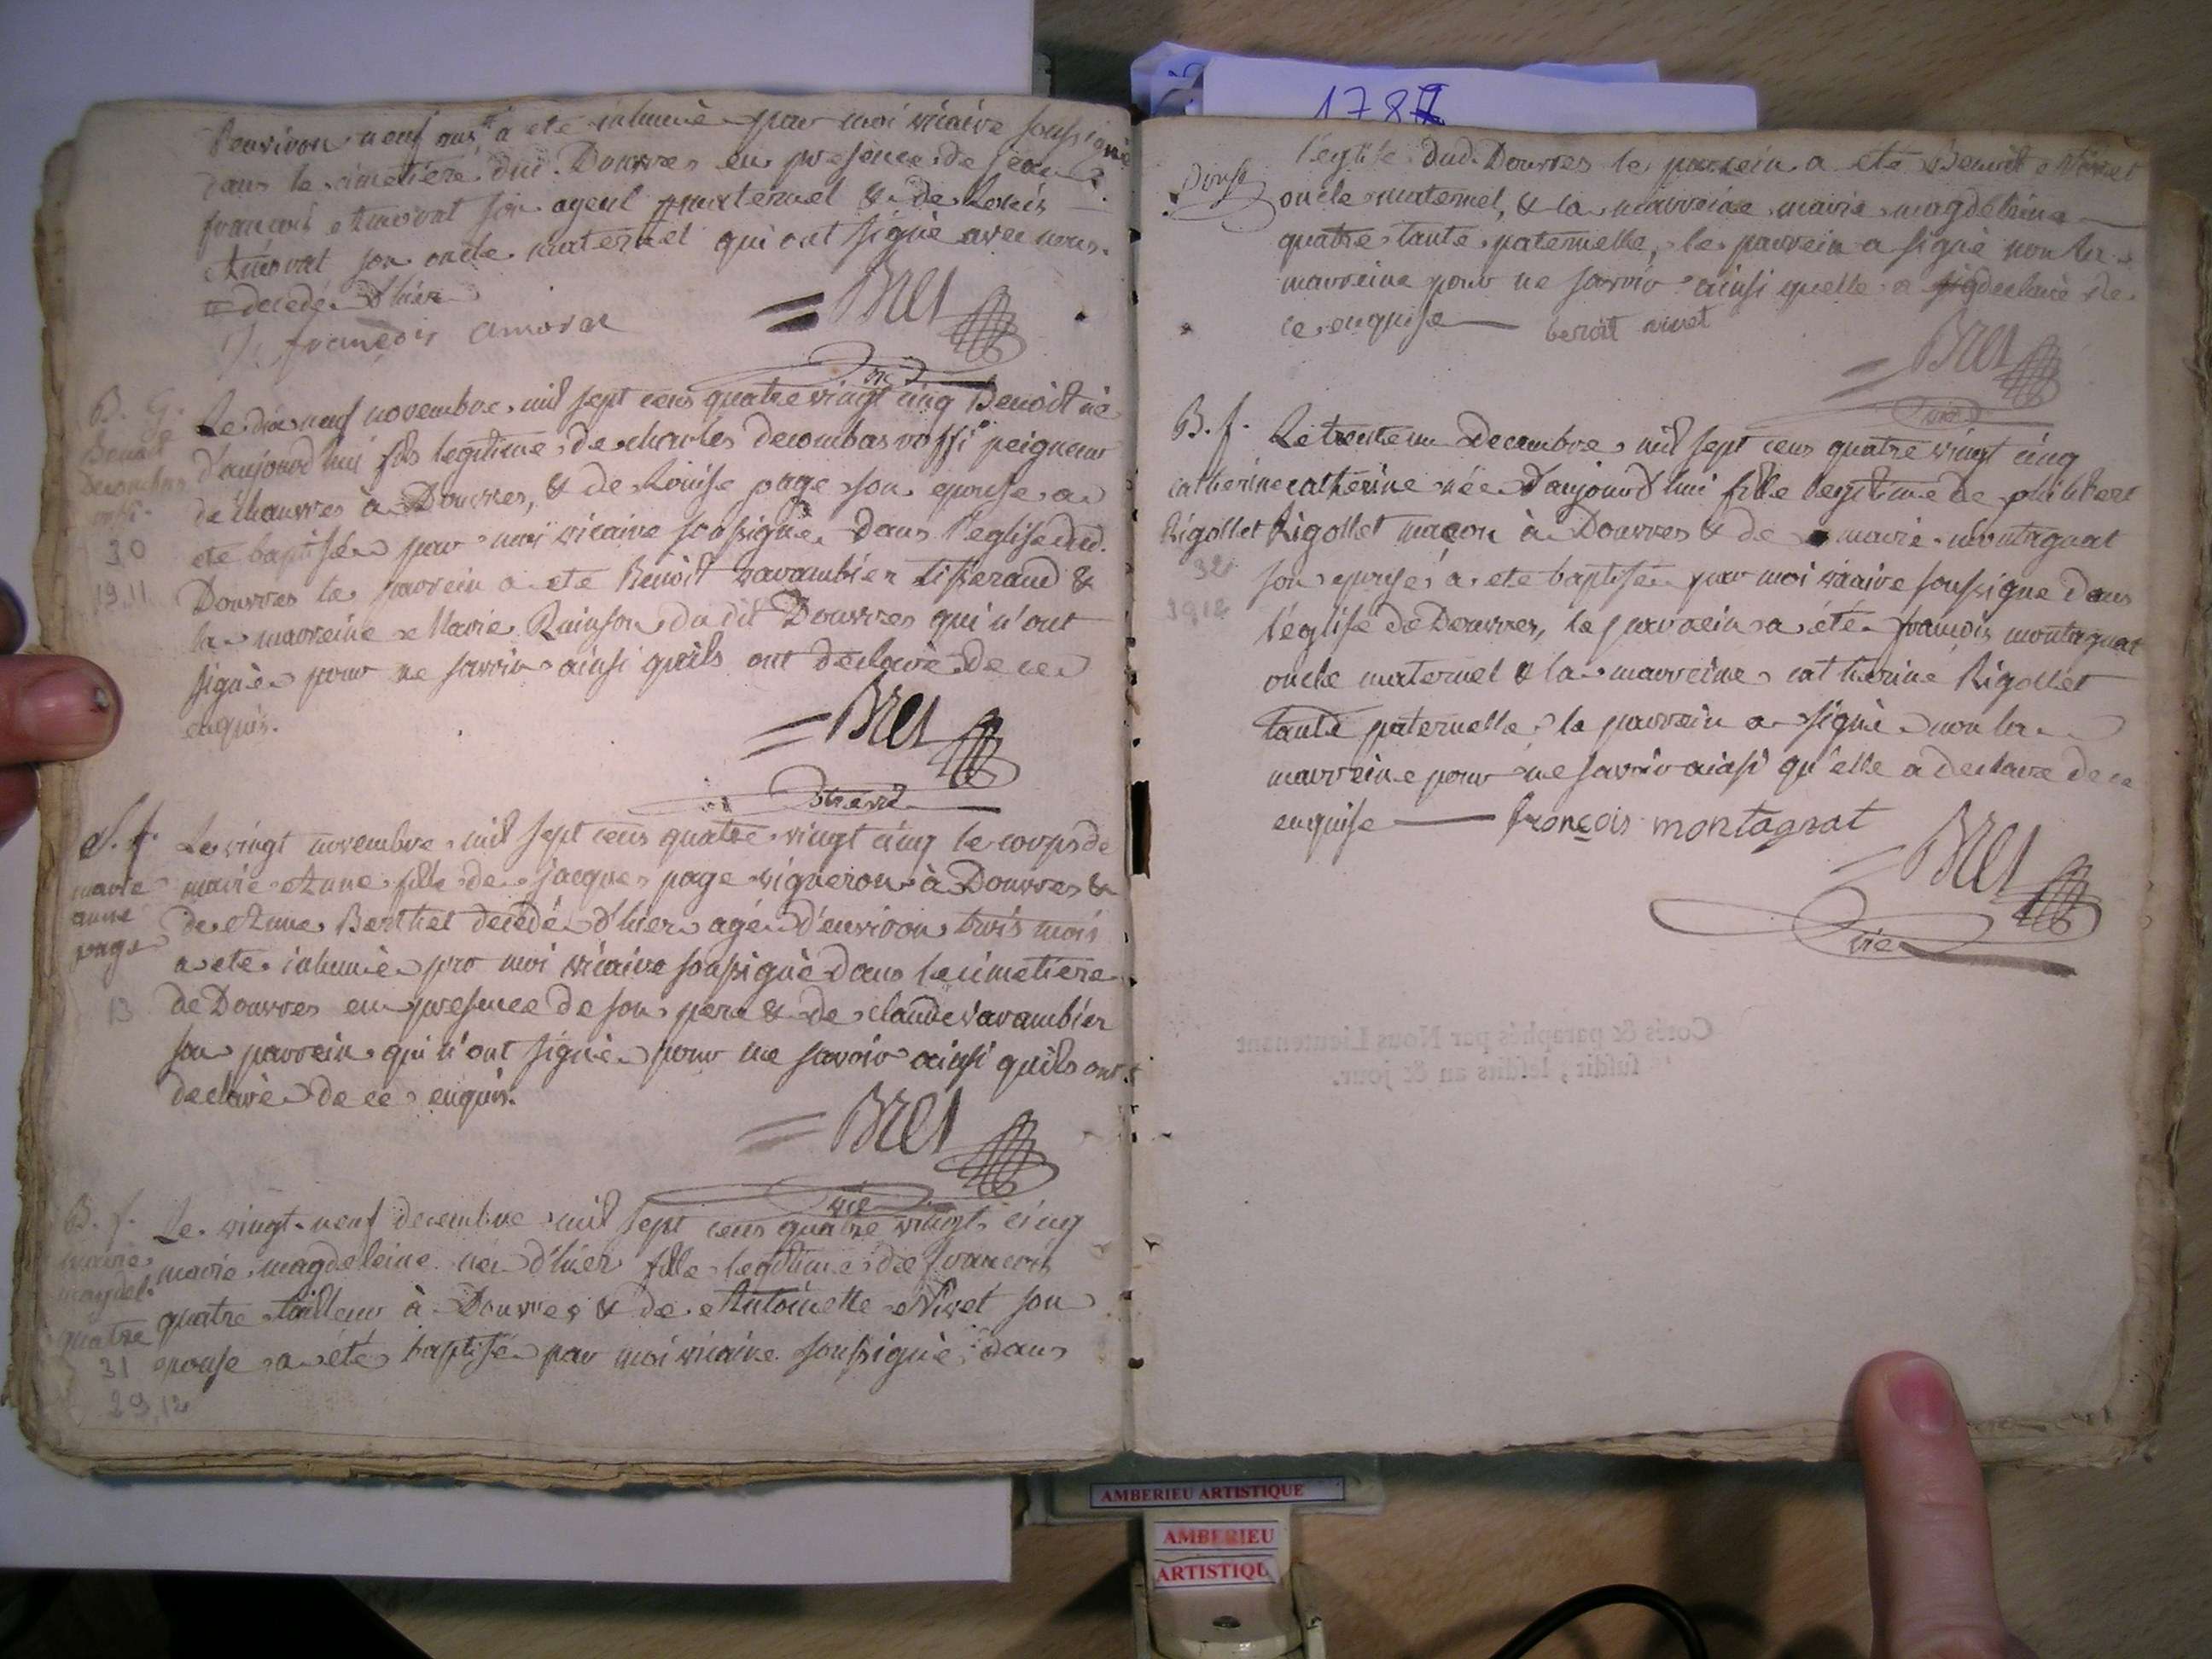 d'environ neuf ans # a eté inhumé par moi vicaire soussigné
dans le cimetiere dud. Douvres en presence de jean
françois Amorat son ayeul maternel & de Louis
Amorat son oncle maternel qui ont signé avec nous.
# decedé d'hier
J. françois amorat
= Bret
vic
B. G.
Benoit
Decombas
30
19.11
Le dix neuf novembre mil sept cens quatre vingt cinq Benoit né
d'aujourd'hui fils legitime de charles decombas roffi peigneur
de chanvres à Douvres, & de Louise page son epouse a
eté baptisé par moi vicaire soussigné dans l'eglise dud.
Douvres le parrein a eté Benoit varambier tisserand &
la marreine Marie Quinson dudit Douvres qui n'ont
signé pour ne savoir ainsi qu'ils ont déclaré de ce
enquis.
= Bret
S. f.
marie
anne
page
13
Le vingt novembre mil sept cens quatre vingt cinq le corps de
marie Anne fille de jacques page vigneron à Douvres &
de Anne Berthet decedé d'hier agé d'environ trois mois
a eté inhumé par moi vicaire soussigné dans le cimetiere
de Douvres en presence de son pere & de claude varambier
son parrein qui n'ont signé pour ne savoir ainsi quils ont
declaré de ce enquis.
= Bret
vic
B. f.
marie
magdel.
quatre
31
29.12
Le vingt neuf decembre mil sept cens quatre vingt cinq
marie magdeleine née d'hier fille legitime de francois
quatre tailleur à Douvres & de Antoinette Nivet son
epouse a été baptisé par moi vicaire soussigné dans
1787
l'eglise dud. Douvres le parrein a eté Benoit Nivet
oncle maternel, & la marreine marie magdeleine
quatre tante paternelle, le parrein a signé non la
marreine pour ne savoir ainsi quelle a declaré de
ce enquise benoit nivet
= Bret
vic
B. f.
catherine
Rigollet
32
Le trente un decembre mil sept cens quatre vingt cinq
catherine née d'aujourd'hui fille legitime de philibert
Rigollet maçon à Douvres & de marie montagnat
son epouse a eté baptisé par moi vicaire soussigné dans
l'église de Douvres, le parrein a été françois montagnat
oncle maternel & la marreine catherine Rigollet
tante paternelle, le parrein a signé non la
marreine pour ne savoir ainsi qu'elle a declare de ce
enquise françois montagnat
= Bret
vic
Cotés & paraphés par Nous Lieutenant
susdit, lesdits an & jour.
AMBERIEU ARTISTIQUE
AMBERIEU
ARTISTIQU